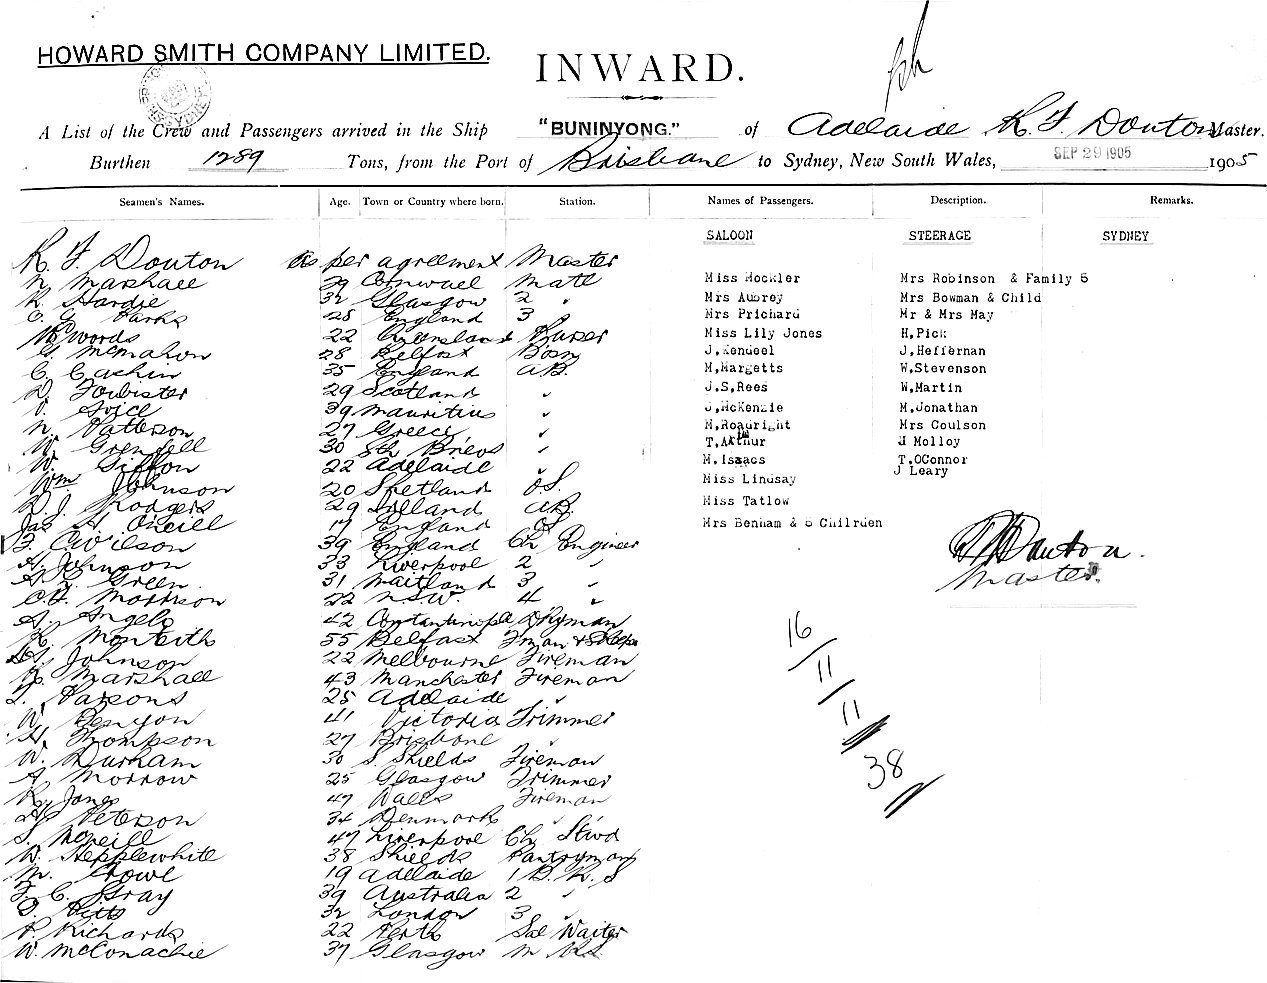 HOWARD SMITH COMPANY LIMITED.
INWARD.
A List of the Crew and Passengers arrived in the Ship "BUNINYONG." of Adelaide R. F. Douton Master.
Burthen 1289 Tons, from the Port of Brisbane to Sydney, New South Wales, SEP 29 1905 1905
Seamen's Names. Age. Town or Country where born. Station. Names of Passengers. Description. Remarks.
SALOON STEERAGE SYDNEY
R. F. Douton As per agreement Master
N. Marshall 39 Cornwall Mate
R. Hardie 32 Glasgow 2 "
C. G. Parks 28 England 3 "
Woods 22 Queensland Purser
G. McMahon 28 Belfast Bosn
C. Cashin 35 England A.B.
D. Forbister 29 Scotland "
39 Mauritius "
N. Patterson 27 Greece "
W. Grenfell 30 "
W. Giffon 22 Adelaide "
Wm Johnson 20 Shetland O.S.
Rodgers 29 A.B.
Jas H. O'neill 17 England O.S.
F. C. Wilson 39 England Ch Engineer
A. Johnson 33 Liverpool 2 "
A. G. Green 31 Maitland 3 "
C. H. Morrison 22 N.S.W. 4 "
A. Angelo 42 Constantinople Dkyman
R. Monteith 55 Belfast
Johnson 22 Melbourne Fireman
Marshall 43 Manchester Fireman
T. Parsons 25 Adelaide "
W. Benyon 41 Victoria Trimmer
H. Thompson 27 Brisbane "
W. Durham 30 S. Shields Fireman
A. Morrow 25 Glasgow Trimmer
R. Jones 47 Wales Fireman
Peterson 34 Denmark "
S. McNeill 47 Liverpool Ch Stwd
W. Hepplewhite 38 Shields Pantryman
M. Crowe 19 Adelaide 1 B. R. S
F. C. Gray 39 Australia 2 "
Pitts 32 London 3 "
P. Richards 22 Perth Sal Waiter
W. McConachie 37 Glasgow
Miss Mockler
Mrs Aubrey
Mrs Prichard
Miss Lily Jones
J.Kendeel
M.Margetts
J.S.Rees
J.McKenzie
M.Roauright
T.Arthur
M.Isaacs
Miss Lindsay
Miss Tatlow
Mrs Benham & 5 Chilrden
Mrs Robinson & Family 5
Mrs Bowman & Child
Mr & Mrs May
H.Pick
J.Heffernan
W.Stevenson
W.Martin
M.Jonathan
Mrs Coulson
J Molloy
T.OConnor
J Leary
R F Douton.
Master.
16
11
11
38